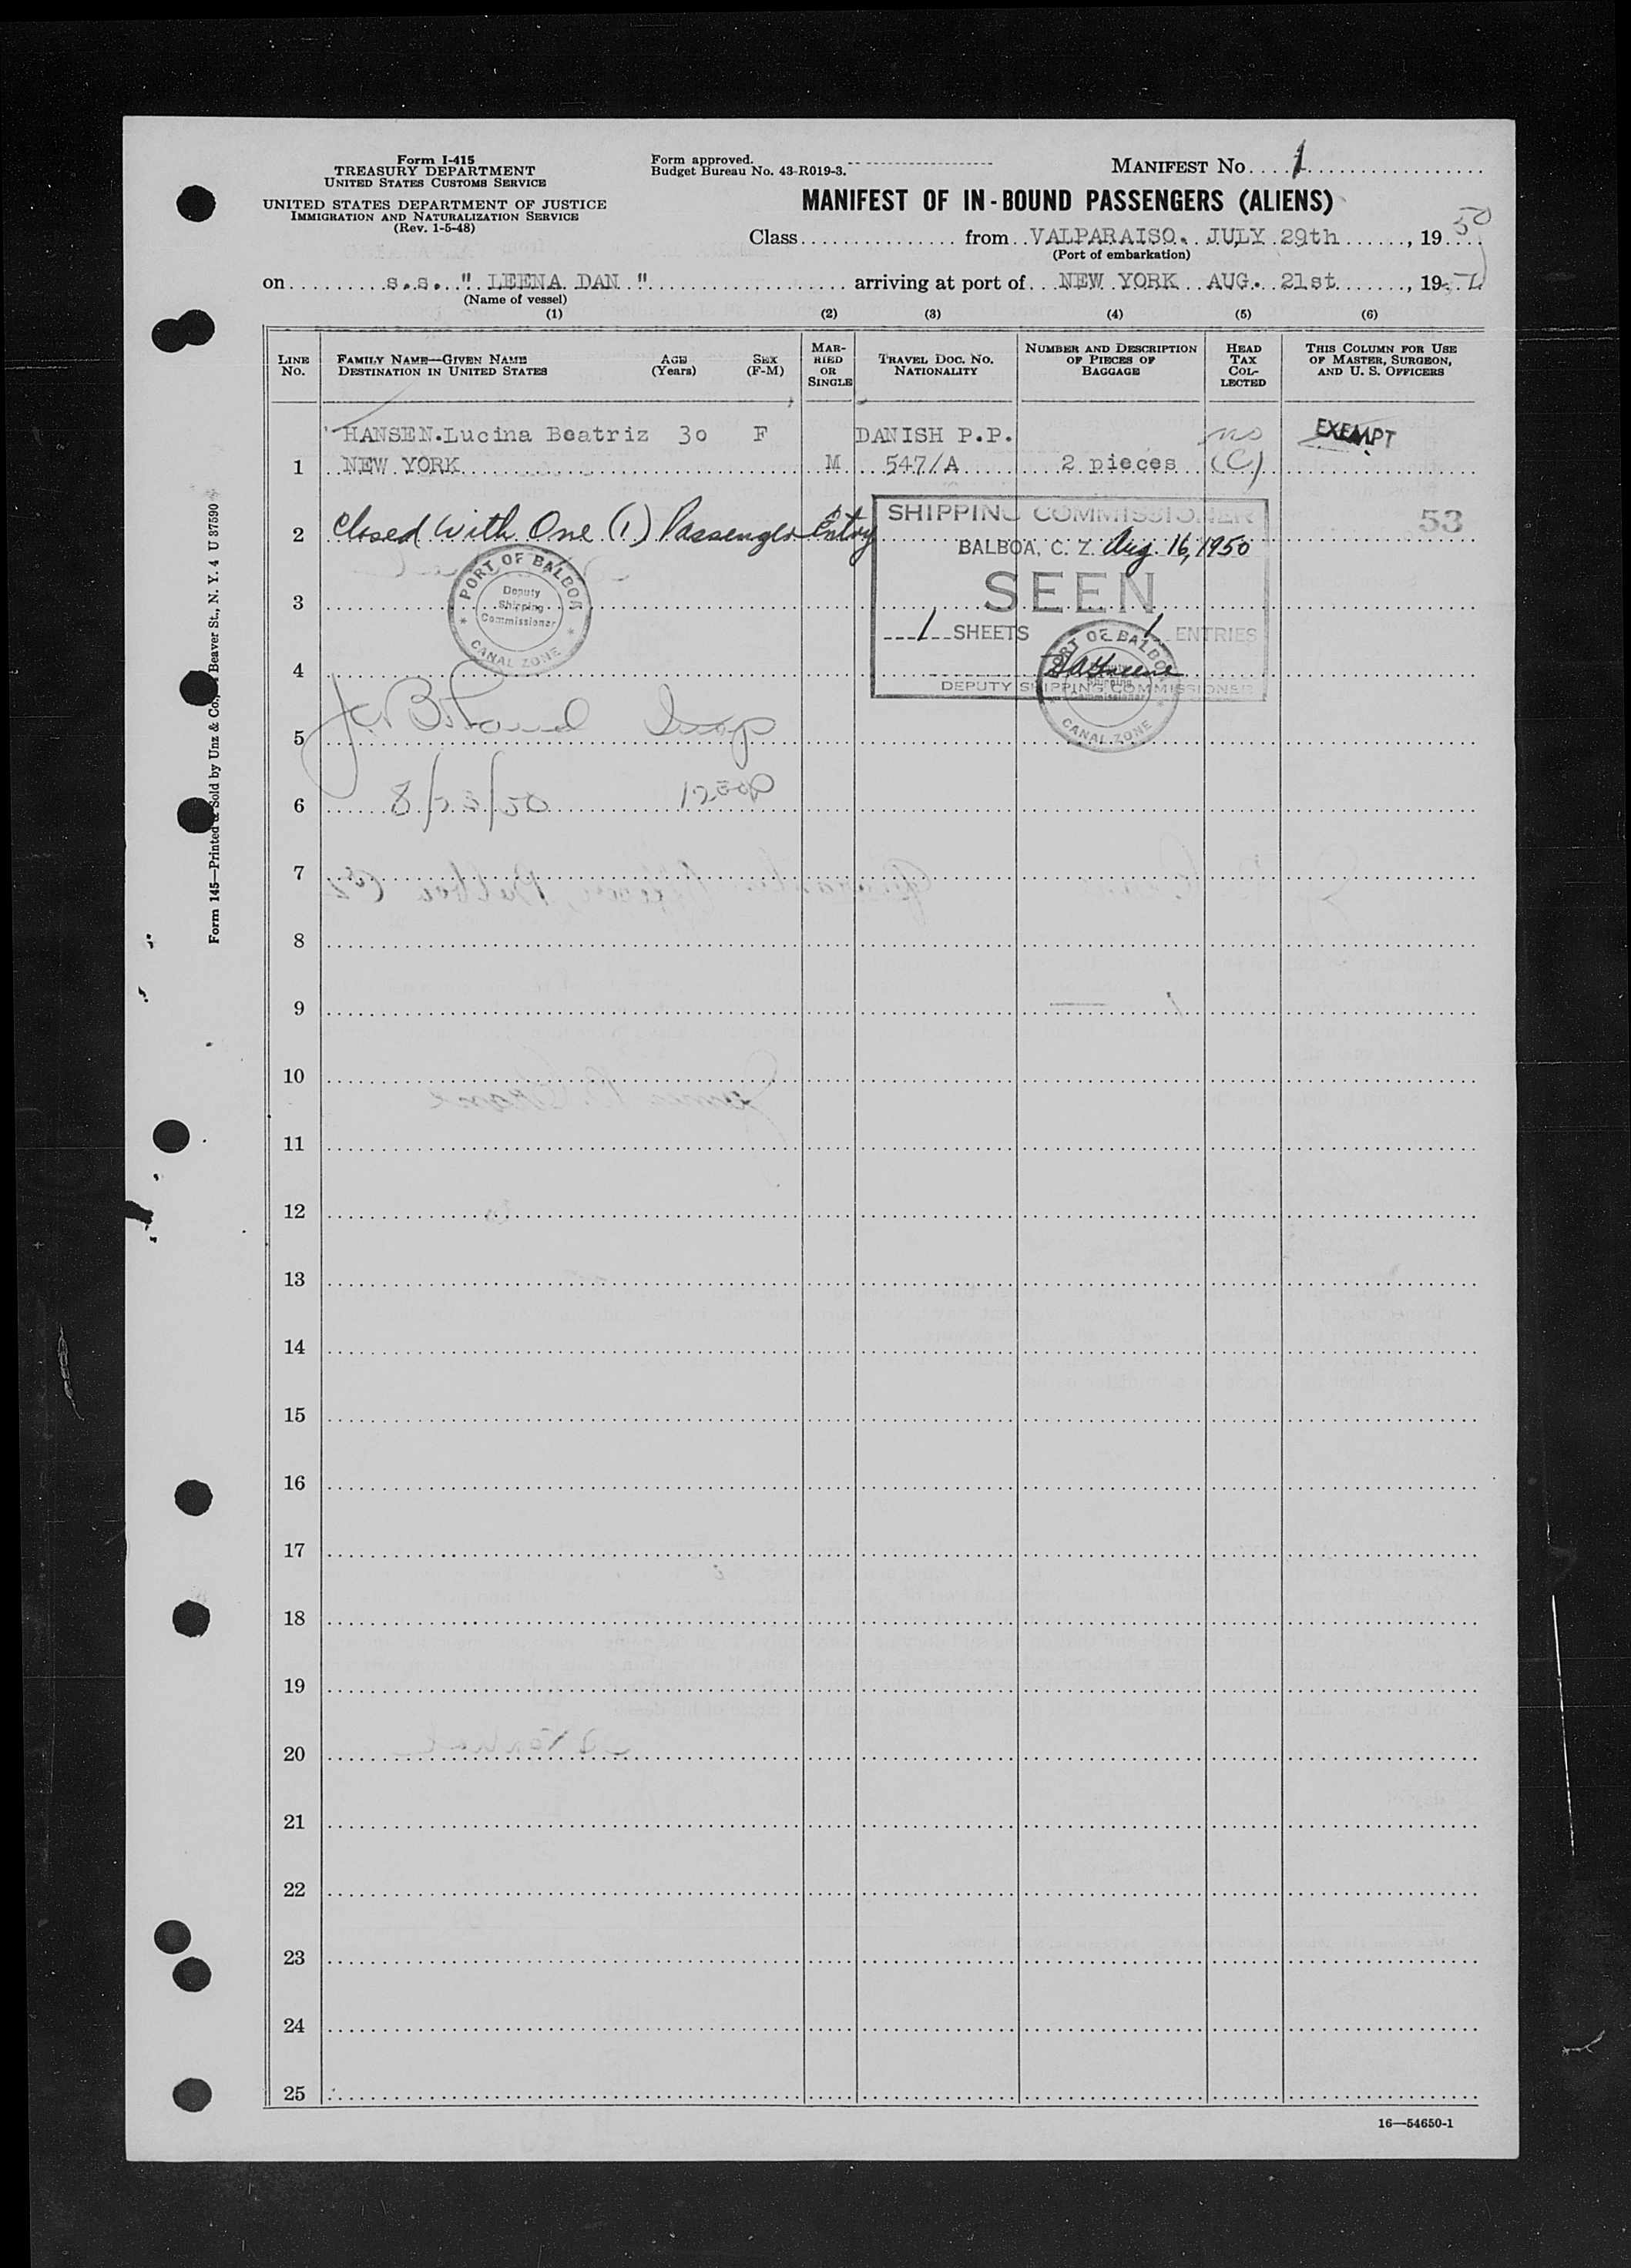 Form I-415
TREASURY DEPARTMENT
UNITED STATES CUSTOMS SERVICE
UNITED STATES DEPARTMENT OF JUSTICE
IMMIGRATION AND NATURALIZATION SERVICE
(Rev. 1-5-48)
Form approved.
Budget Bureau No. 43-R019-3.
MANIFEST No. 1
MANIFEST OF IN-BOUND PASSENGERS (ALIENS)
Class from VALPARAISO. JULY 29th, 19 50
(Port of embarkation)
on s.s. " LEENA DAN " arriving at port of NEW YORK AUG. 21st, 19
(Name of vessel)
(1) (2) (3) (4) (5) (6)
LINE No. FAMILY NAME—GIVEN NAME DESTINATION IN UNITED STATES AGE (Years) SEX (F-M) MARRIED OR SINGLE TRAVEL DOC. NO. NATIONALITY NUMBER AND DESCRIPTION OF PIECES OF BAGGAGE HEAD TAX COLLECTED THIS COLUMN FOR USE OF MASTER, SURGEON, AND U. S. OFFICERS
HANSEN.Lucina Beatriz 30 F DANISH P.P. no EXEMPT
1 NEW YORK M 547/A 2 pieces (C)
SHIPPING COMMISSIONER 53
2 Closed With One (1) Passenger Entry
BALBOA, C. Z. Aug. 16, 1950
PORT OF BALBOA
Deputy
Shipping
Commissioner
CANAL ZONE
SEEN
3
1 SHEETS 1 ENTRIES
PORT OF BALBOA
Deputy
Shipping
Commissioner
CANAL ZONE
4
DEPUTY SHIPPING COMMISSIONER
5 Insp
6 8/23/50
7
8
9
10
11
12
13
14
15
16
17
18
19
20
21
22
23
24
25
16—54650-1
Form 145—Printed & Sold by Unz & Co., Beaver St., N. Y. 4 U 37590